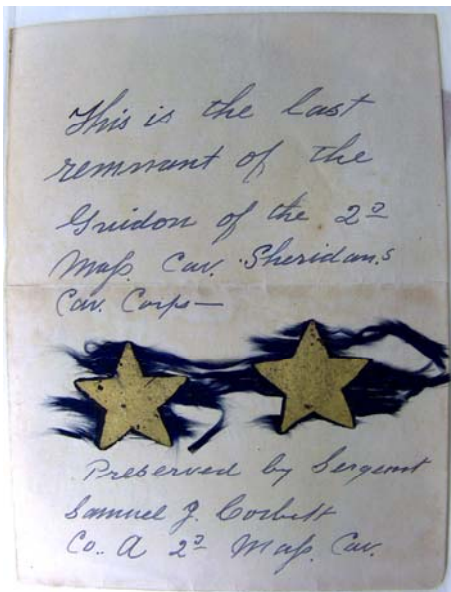 This is the last
remnant of the
Guidon of the 2ᵈ
Mass. Cav. Sheridan.s
Cav. Corps—
Preserved by Sergent
Samuel J. Corbett
Co. A 2ᵈ Mass. Cav.